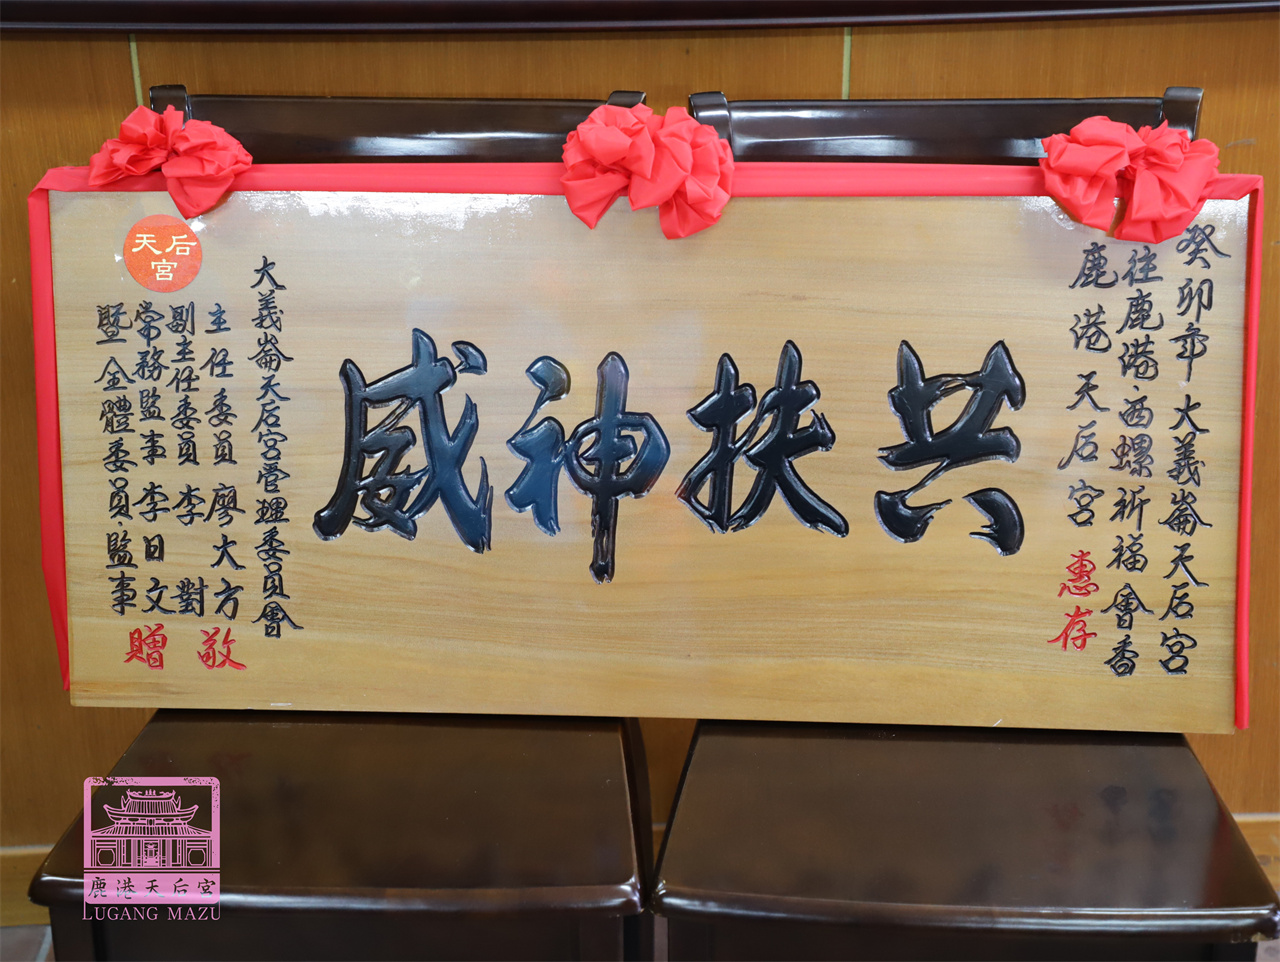 癸卯年大義崙天后宮
往鹿港西螺祈福會香
鹿港天后宮惠存
共扶神威
大義崙天后宮管理委員會
主任委員廖大方
副主任委員李對
常務監事李日文
暨全體委員監事
敬贈
天后宮
鹿港天后宮
LUGANG MAZU